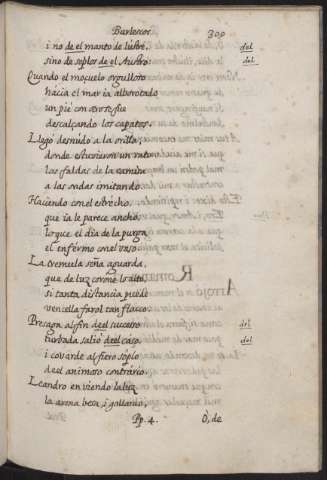 Burlescos. 300
i no de el manto de lustre, del
sino de soplos de el Austro. del
Quando el moçuelo orgulloso
hacia el mar ia alborotado
un pie con otro se fue
descalçando los çapatos.
Llegó desnudo a la orilla,
donde estuvieron un rato
las faldas de la camisa
a las ondas imitando.
Haciendo con el estrecho,
que ia le parece ancho,
lo que el dia de la purga
el enfermo con el vaso.
La tremula seña aguarda,
que de luz corone lo alto,
si tanta distancia puede
vencella farol tan flaco.
Presaga al fin de el sucesso del
turbada salió de el caso, del
i covarde al fiero soplo
de el animoso contrario.
Leandro en viendo la luz
la arena besa, i gallardo,
Pp. 4. Ò, de